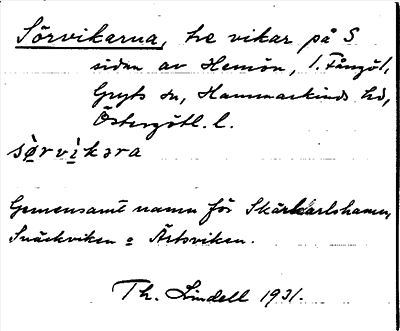 Sörvikarna, tre vikar på S
sidan av Hemön, i. Fångö,
Gryts sn, Hammarkinds hd,
Östergötl. l.
sø̀rvìkəra
Gemensamt namn för Skärkarlshamn,
Snäckviken o Ärtsviken.
Th. Lindell 1931.